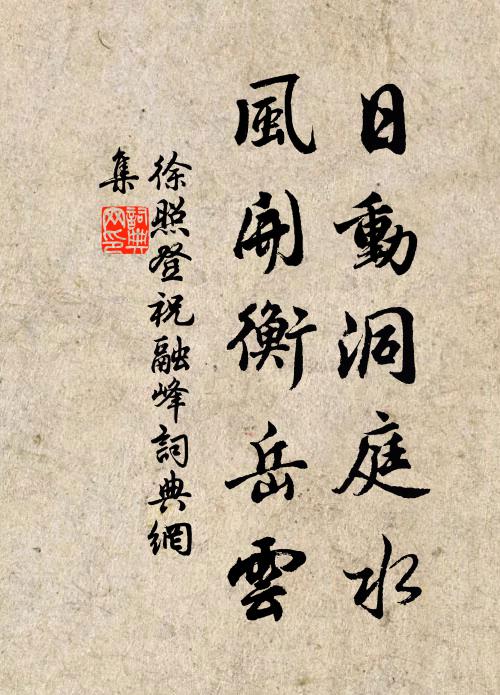 日動洞庭水
風開衡岳雲
徐照登祝融峰詞典網
集
詞典
网印